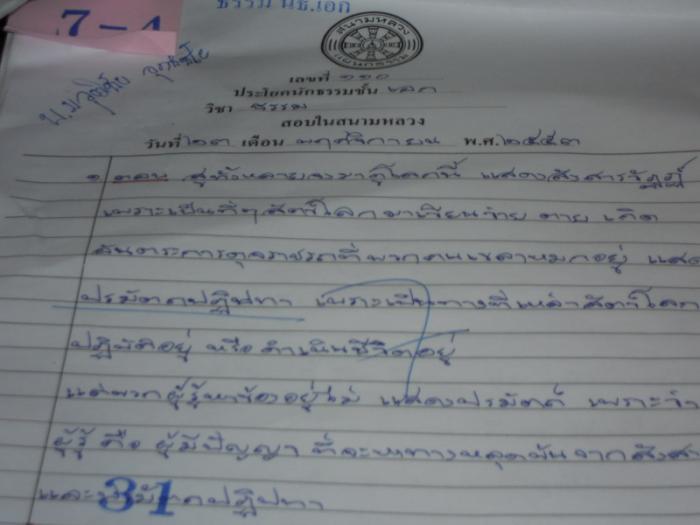 ธรรม นธ.เอก
7-4
สนามหลวง
แผนกธรรม
เลขที่ ๑๑๐
ประโยคนักธรรมชั้น เอก
วิชา ธรรม
สอบในสนามหลวง
วันที่ ๒๓ เดือน พฤศจิกายน พ.ศ. ๒๕๕๓
๑ ตอบ สูทั้งหลายจงมาดูโลกนี้ แสดงสังสารวัฏฏ์
เพราะเป็นที่ๆ สัตว์โลกมาเวียนว่าย ตาย เกิด
อันตระการดุจราชรถที่พวกคนเขลาหมกอยู่
ปรมัตถปฏิปทา เพราะเป็นทางที่เหล่าสัตว์โลก
ปฏิบัติอยู่ หรือดำเนินชีวิตอยู่
แต่พวกผู้รู้หาข้องอยู่ไม่ แสดงปรมัตถ์ เพราะว่า
ผู้รู้ คือ ผู้มีปัญญา ที่จะหาทางหลุดพ้นจากสังสา
และปรมัตถปฏิปทา
31